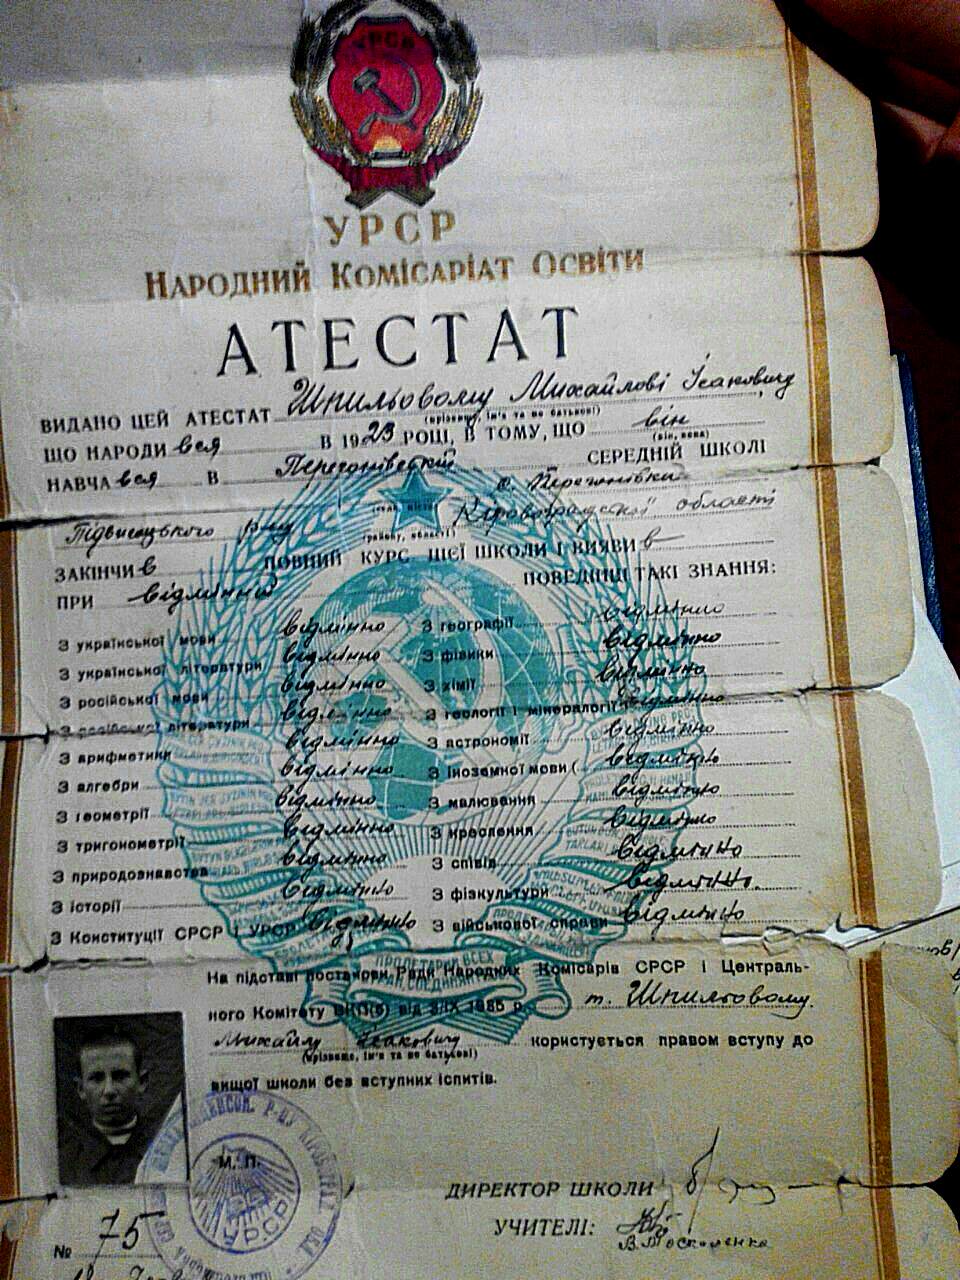 УРСР
УРСР
НАРОДНИЙ КОМІСАРІАТ ОСВІТИ
АТЕСТАТ
ВИДАНО ЦЕЙ АТЕСТАТ Шпильовому Михайлові Ісаковичу,
(прізвище, ім'я та по батькові)
ЩО НАРОДИвся В 1923 РОЦІ, В ТОМУ, ЩО він
(він, вона)
НАВЧАвся В СЕРЕДНІЙ ШКОЛІ
с. Перегонівки
(село, місто)
Підвисоцького р-ну Кіровоградської області
(району, області)
ЗАКІНЧИв ПОВНИЙ КУРС ЦІЄЇ ШКОЛИ І ВИЯВИв
ПРИ відмінній ПОВЕДІНЦІ ТАКІ ЗНАННЯ:
З української мови відмінно З географії відмінно
З української літератури відмінно З фізики відмінно
З російської мови відмінно З хімії відмінно
З російської літератури відмінно З геології і мінералогії відмінно
З арифметики відмінно З астрономії відмінно
З алгебри відмінно З іноземної мови ( відмінно
З геометрії відмінно З малювання відмінно
З тригонометрії відмінно З креслення відмінно
З природознавства відмінно З співів відмінно
З історії відмінно З фізкультури відмінно.
З Конституції СРСР і УРСР відмінно З військової справи відмінно
ПРОЛЕТАРИИ ВСЕХ
СТРАН, СОЕДИНЯЙТЕСЬ
На підставі постанови Ради Народних Комісарів СРСР і Централь-
ного Комітету ВКП(б) від 3/IX 1935 р. т. Шпильовому
Михайлу Ісаковичу користується правом вступу до
(прізвище, ім'я та по батькові)
вищої школи без вступних іспитів.
М. П.
УРСР
ДИРЕКТОР ШКОЛИ
УЧИТЕЛІ:
В. Москаленко
№ 75